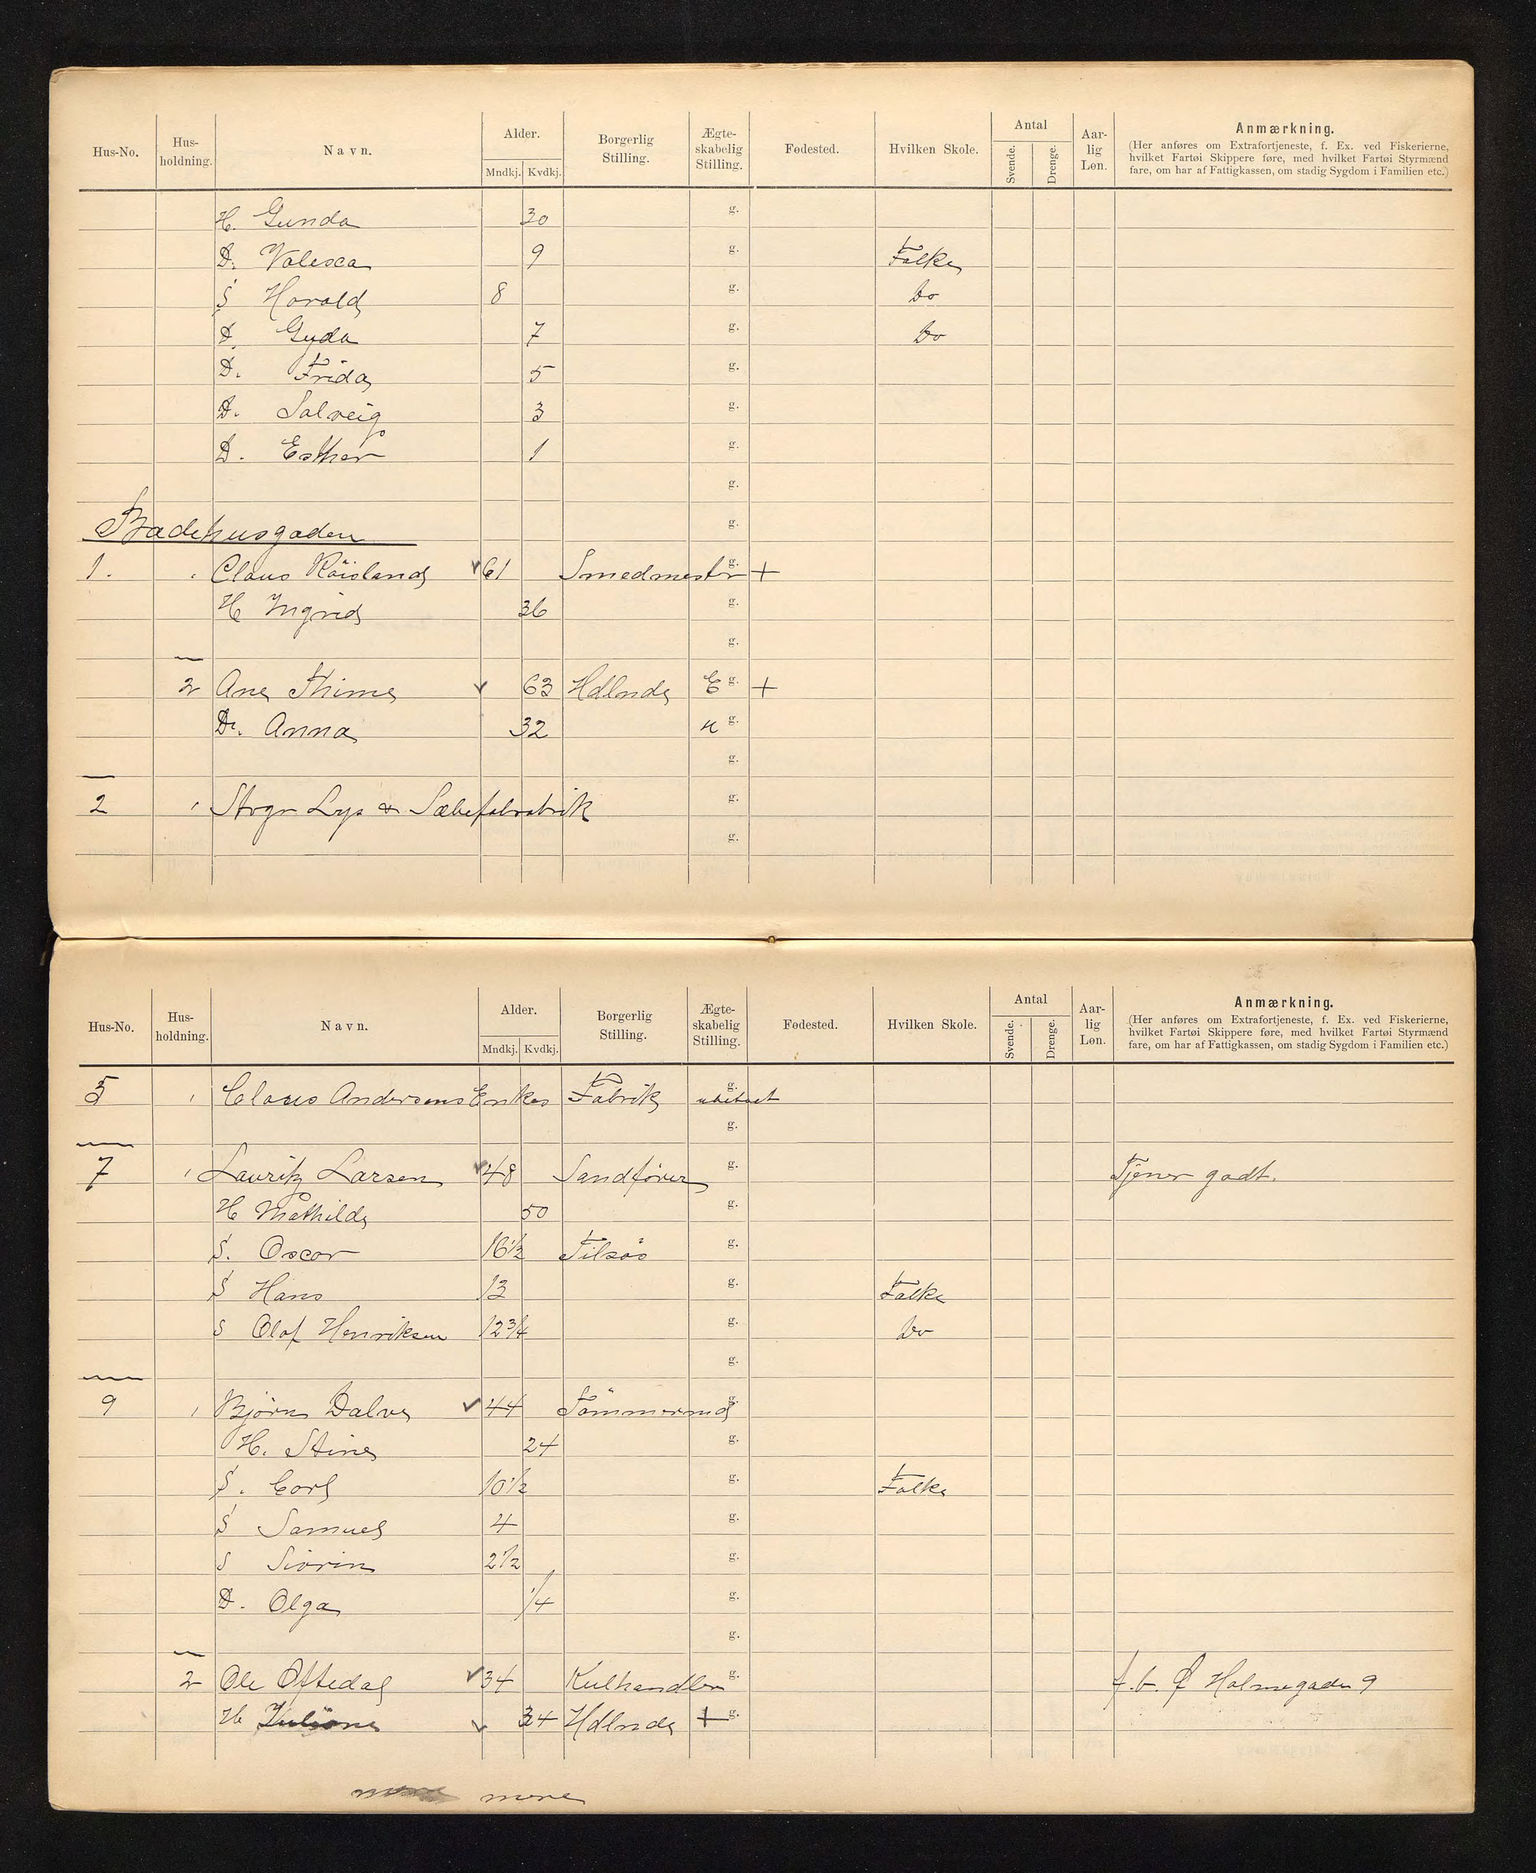 Hus-No. Hus-holdning. Navn. Alder. Mndkj. Kvdkj. Borgerlig Stilling. Ægte-skabelig Stilling. Fødested. Hvilken Skole. Antal Svende. Drenge. Aar-lig Løn. Anmærkning.
(Her anføres om Extrafortjeneste, f. Ex. ved Fiskerierne, hvilket Fartøi Skippere føre, med hvilket Fartøi Styrmænd fare, om har af Fattigkassen, om stadig Sygdom i Familien etc.)
H. Gunda 30 g.
D. Valesca 9 g. Folke
S Harald 8 g. Do
D. Gyda 7 g. Do
D. Frida 5 g.
D. Solveig 3 g.
D. Esther 1 g.
g.
Badehusgaden g.
1. Claus Röisland 61 Smedmester g. +
H Ingrid 36 g.
g.
2 Ane Thime 63 Hdlnde E g. +
Dr. Anna 32 u g.
g.
2 Stvgr Lys & Sæbefabrabrik g.
g.
Hus-No. Hus-holdning. Navn. Alder. Mndkj. Kvdkj. Borgerlig Stilling. Ægte-skabelig Stilling. Fødested. Hvilken Skole. Antal Svende. Drenge. Aar-lig Løn. Anmærkning.
(Her anføres om Extrafortjeneste, f. Ex. ved Fiskerierne, hvilket Fartøi Skippere føre, med hvilket Fartøi Styrmænd fare, om har af Fattigkassen, om stadig Sygdom i Familien etc.)
5 Claus Andersens Enkes Fabrik g. ubeboet
g.
7 Lauritz Larsen 48 Sandfører g. Tjener godt.
H Mathilde 50 g.
S. Oscar 16½ Filsøs g.
S Hans 13 g. Folke
S Olaf Henriksen 12¾ g. Do
g.
9 Bjørn Dalve 44 Tömmermd g.
H. Stine 24 g.
S. Carl 10½ g. Folke
S Samuel 4 g.
S Sivrin 2½ g.
D. Olga ¼ g.
g.
2 Ole Oftedal 34 Kulhandler g. f. b. Ø Holmegaden 9
H Juliane 34 Hdlnde + g.
mere